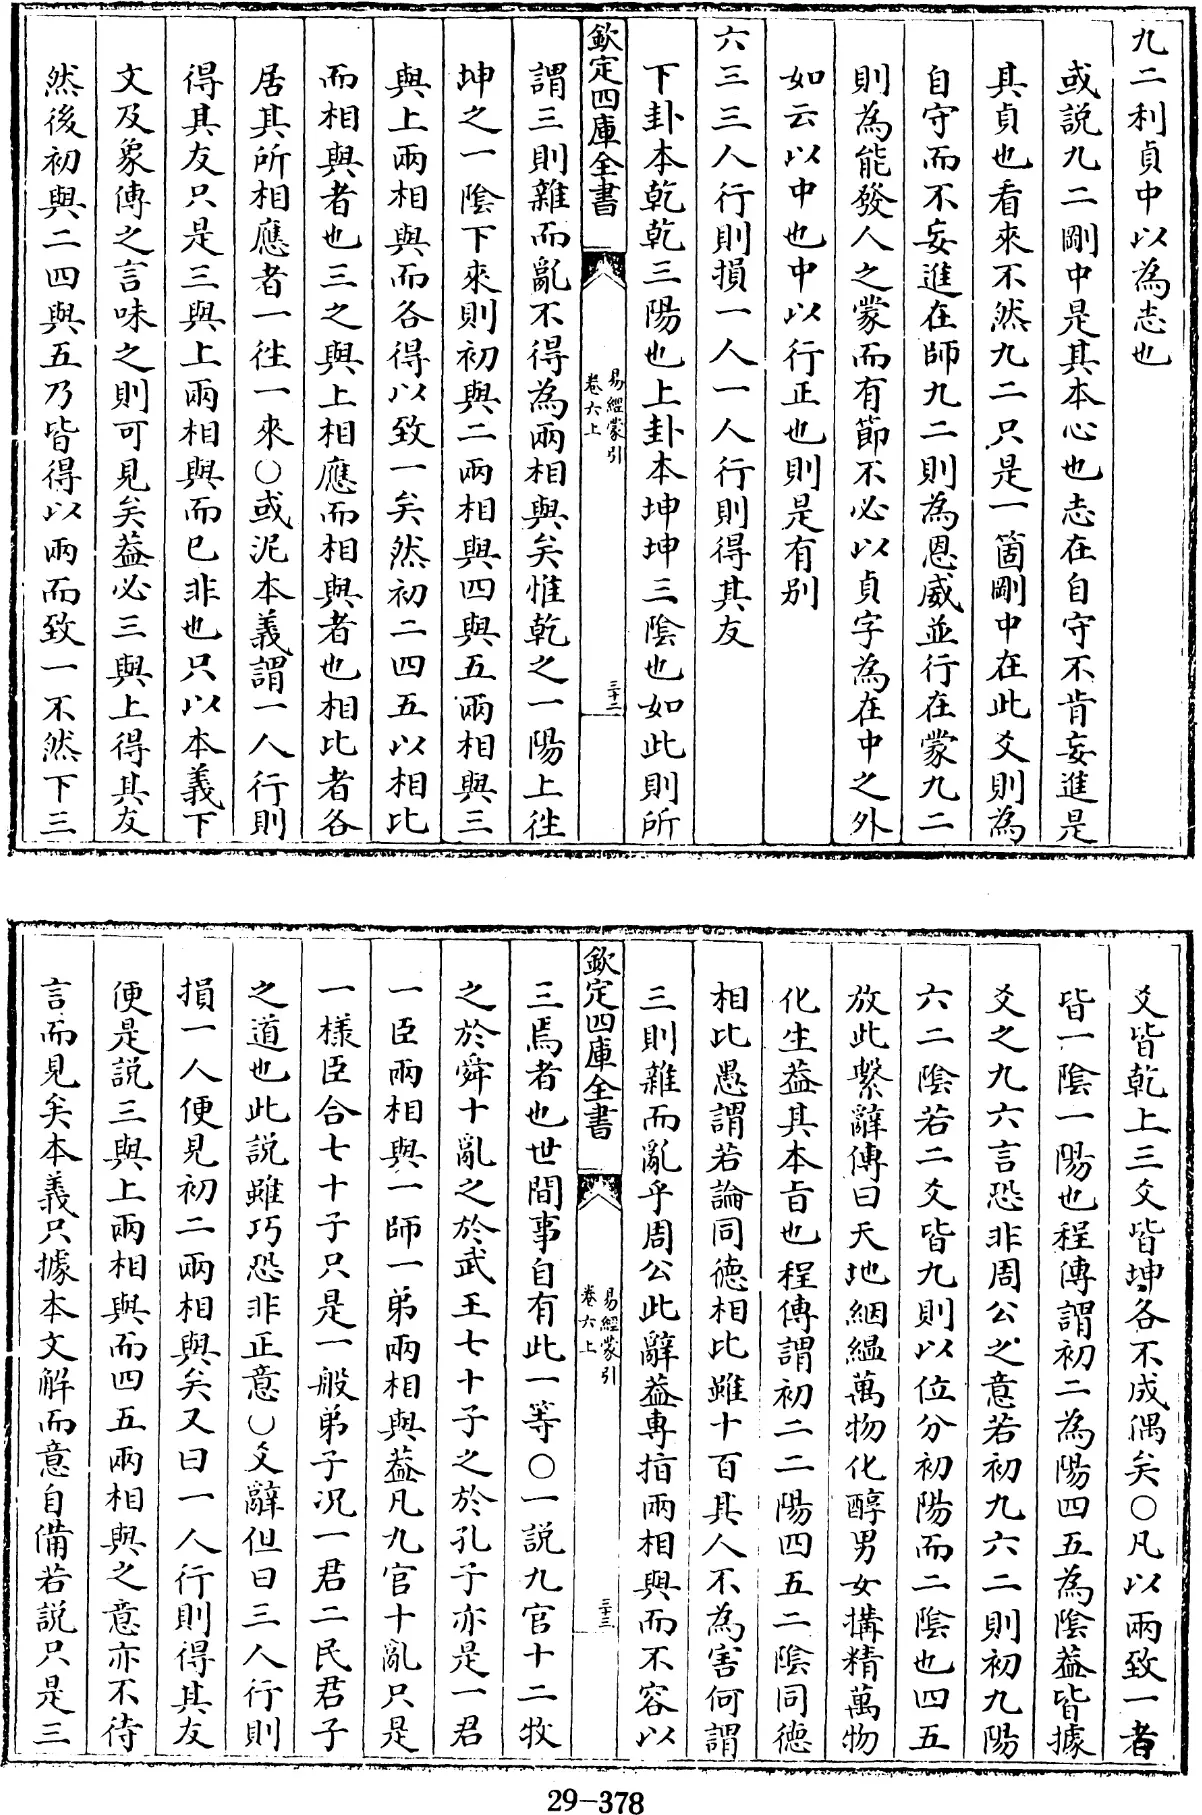 九二利貞中以為志也
或説九二剛中是其本心也志在自守不肯妄進是
其貞也看來不然九二只是一箇剛中在此爻則為
自守而不妄進在師九二則為恩威並行在蒙九二
則為能發人之蒙而有節不必以貞字為在中之外
如云以中也中以行正也則是有别
六三三人行則損一人一人行則得其友
下卦本乾乾三陽也上卦本坤坤三陰也如此則所
欽定四庫全書
易經蒙引
卷六上
三十二
謂三則雜而亂不得為兩相與矣惟乾之一陽上徃
坤之一陰下來則初與二兩相與四與五兩相與三
與上兩相與而各得以致一矣然初二四五以相比
而相與者也三之與上相應而相與者也相比者各
居其所相應者一徃一來○或泥本義謂一人行則
得其友只是三與上兩相與而已非也只以本義下
文及象傳之言味之則可見矣葢必三與上得其友
然後初與二四與五乃皆得以兩而致一不然下三
爻皆乾上三爻皆坤各不成偶矣○凡以兩致一者
皆一陰一陽也程傳謂初二為陽四五為陰葢皆據
爻之九六言恐非周公之意若初九六二則初九陽
六二陰若二爻皆九則以位分初陽而二陰也四五
放此繫辭傳曰天地絪縕萬物化醇男女搆精萬物
化生葢其本旨也程傳謂初二二陽四五二陰同德
相比愚謂若論同德相比雖十百其人不為害何謂
三則雜而亂乎周公此辭葢專指兩相與而不容以
欽定四庫全書
易經蒙引
卷六上
三十三
三焉者也世間事自有此一等○一説九官十二牧
之於舜十亂之於武王七十子之於孔子亦是一君
一臣兩相與一師一弟兩相與葢凡九官十亂只是
一様臣合七十子只是一般弟子况一君二民君子
之道也此説雖巧恐非正意○爻辭但曰三人行則
損一人便見初二兩相與矣又曰一人行則得其友
便是説三與上兩相與而四五兩相與之意亦不待
言而見矣本義只據本文解而意自備若説只是三
29-378